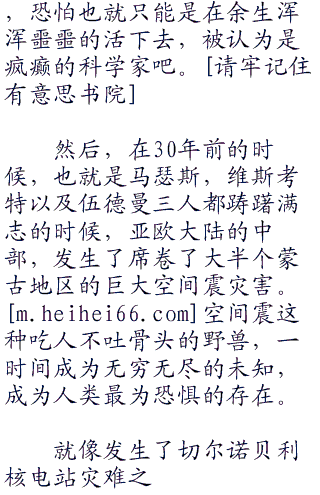 ，恐怕也就只能是在余生浑
浑噩噩的活下去，被认为是
疯癫的科学家吧。[请牢记住
有意思书院]
然后，在30年前的时
候，也就是马瑟斯，维斯考
特以及伍德曼三人都踌躇满
志的时候，亚欧大陆的中
部，发生了席卷了大半个蒙
古地区的巨大空间震灾害。
[m.heihei66.com]空间震这
种吃人不吐骨头的野兽，一
时间成为无穷无尽的未知，
成为人类最为恐惧的存在。
就像发生了切尔诺贝利
核电站灾难之